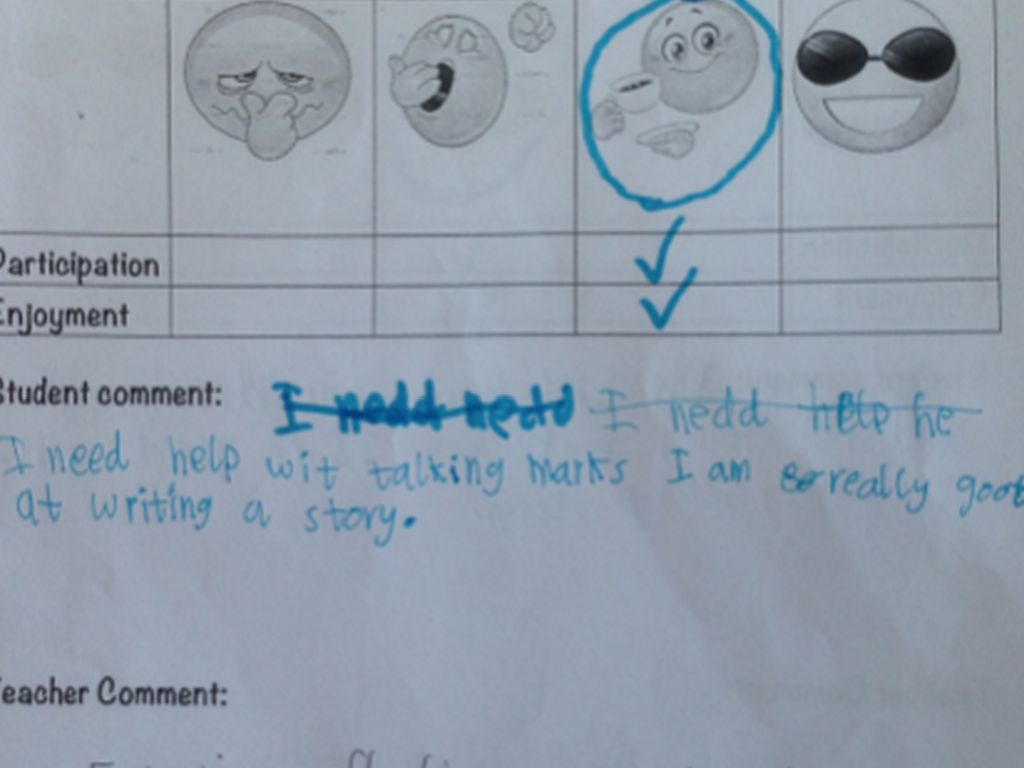 Participation
Enjoyment
Student comment: I nedd nedd I nedd help he
I need help wit talking marks I am really good
at writing a story.
Teacher Comment: